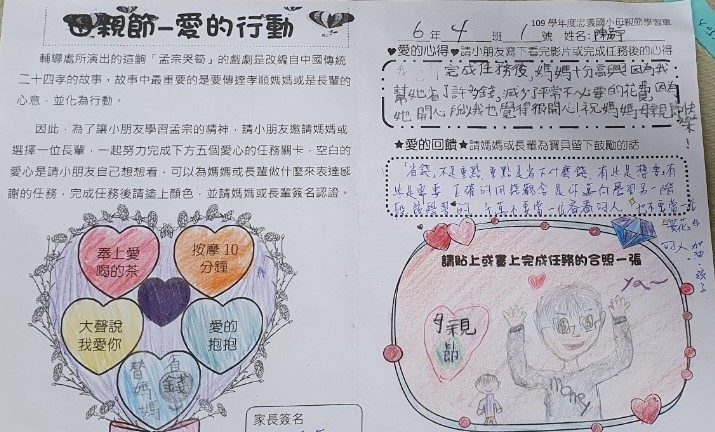 母親節-愛的行動
輔導處所演出的這齣「孟宗哭筍」的戲劇是改編自中國傳統
二十四孝的故事，故事中最重要的是要傳達孝順媽媽或是長輩的
心意，並化為行動。
因此，為了讓小朋友學習孟宗的精神，請小朋友邀請媽媽或
選擇一位長輩，一起努力完成下方五個愛心的任務關卡，空白的
愛心是請小朋友自己想想看，可以為媽媽或長輩做什麼來表達感
謝的任務，完成任務後請塗上顏色，並請媽媽或長輩簽名認證。
奉上愛
喝的茶
按摩10
分鐘
大聲說
我愛你
愛的
抱抱
替媽媽
省錢
家長簽名
109 學年度忠義國小母親節學習單
6年4班1號 姓名：陳
♥愛的心得♥請小朋友寫下看完影片或完成任務後的心得
完成任務後，媽媽十分高興，因為我
幫她省了許多錢，減少了平常不必要的花費，因為
她開心，所以我也覺得很開心！祝媽媽母親節快
樂！
★愛的回饋★請媽媽或長輩為寶貝留下鼓勵的話
省錢，不是重點，重點是省下什麼錢，有些是想要，有
些是需要，正確的用錢觀念是你邁向學習另一階
段
千萬不要當一位吝嗇的人，也不要當一位
愛花
的人 加油
孩子
請貼上或畫上完成任務的合照一張
ya~
母親
節
money